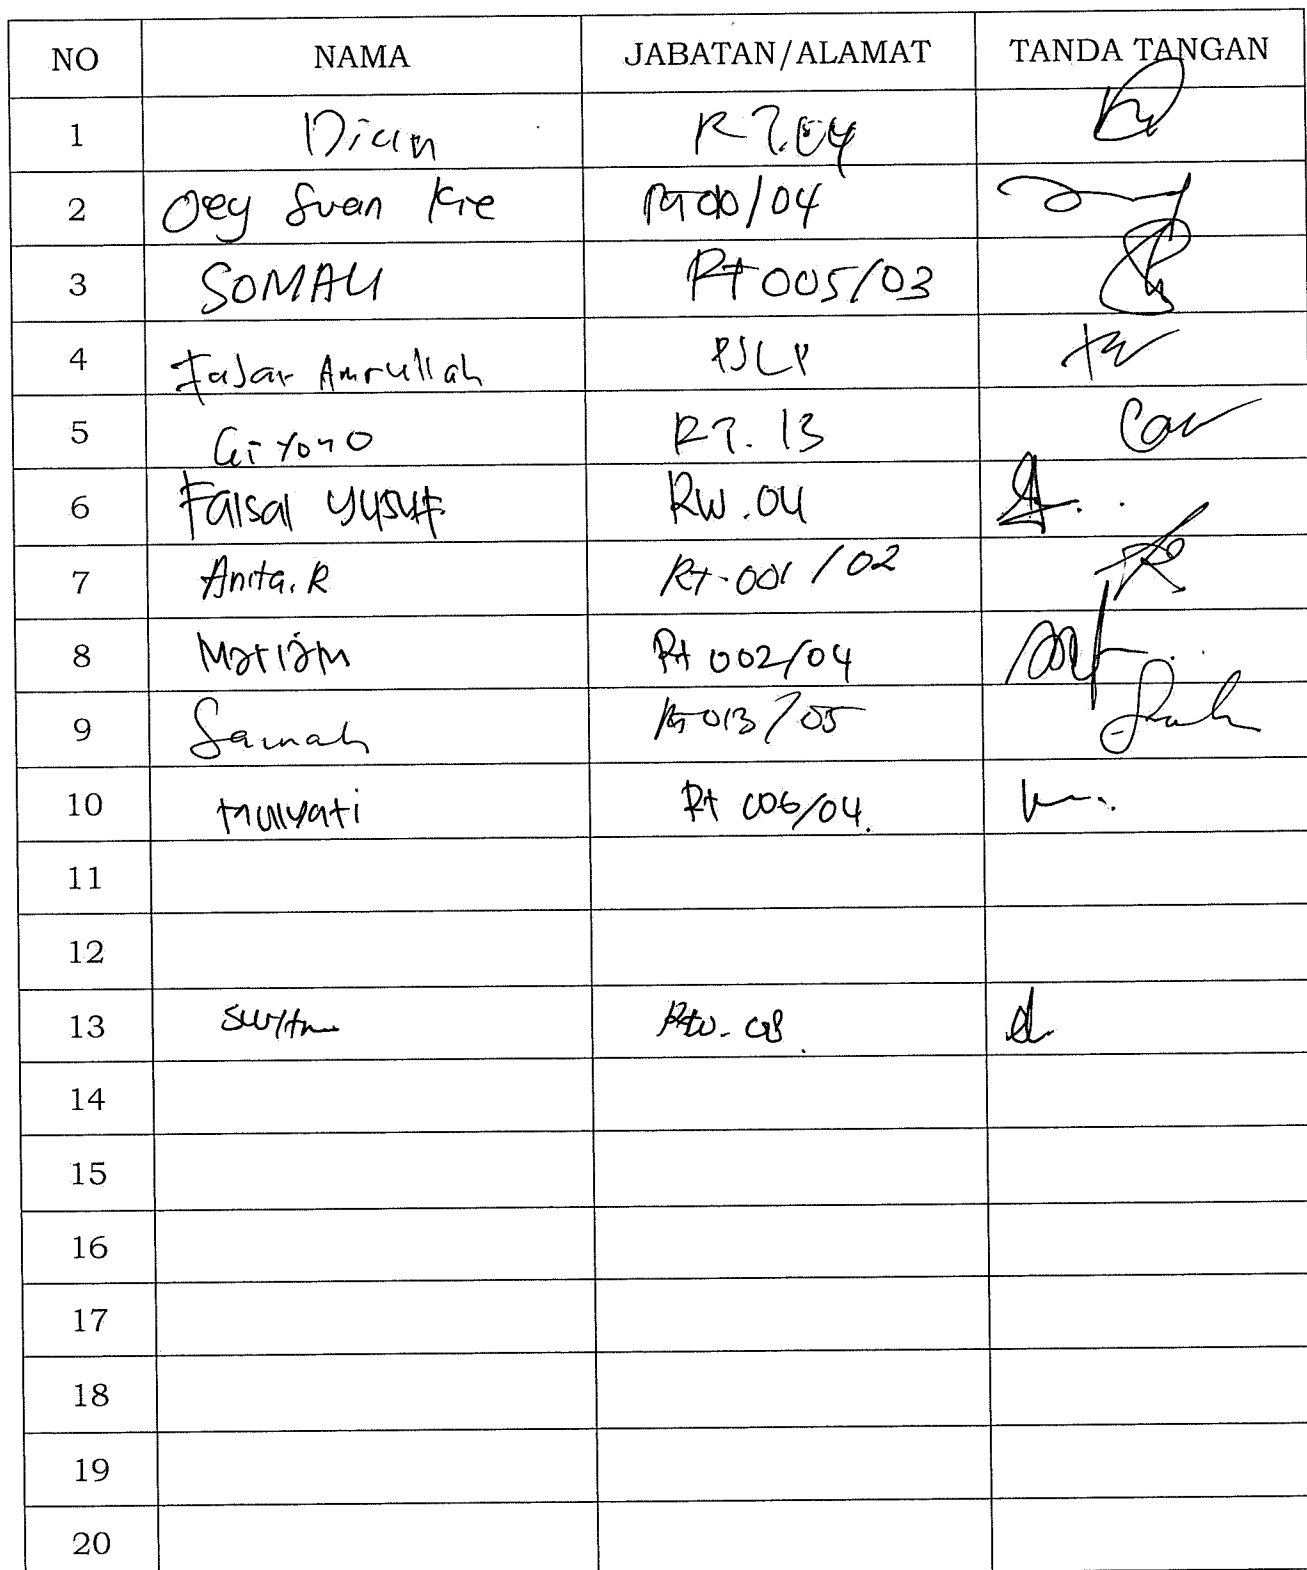 NO NAMA JABATAN/ALAMAT TANDA TANGAN
1 Dian RT.04
2 Oey Suan Kie /04
3 SOMALI Rt 005/03
4 Fajar Amrullah PJLP
5 Giyono RT. 13
6 Faisal Yusuf RW.04
7 Anita.R Rt-001/02
8 Mariam Rt 002/04
9 Samah Rt 013/05
10 Mulyati Rt 006/04.
11
12
13
14
15
16
17
18
19
20